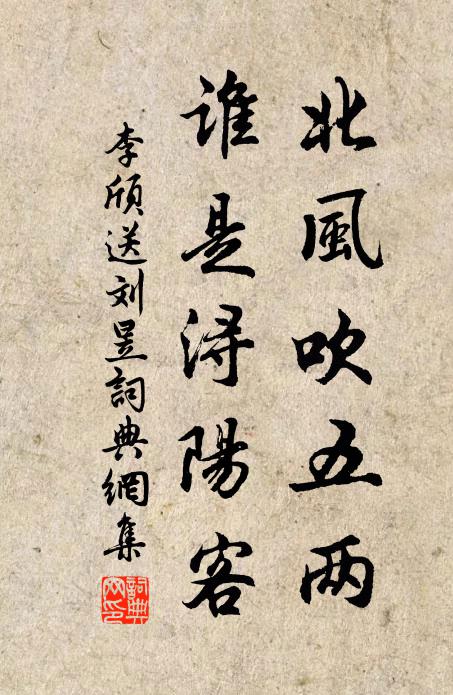 北風吹五两
誰是潯陽客
李頎送刘昱詞典網集
詞典
网印